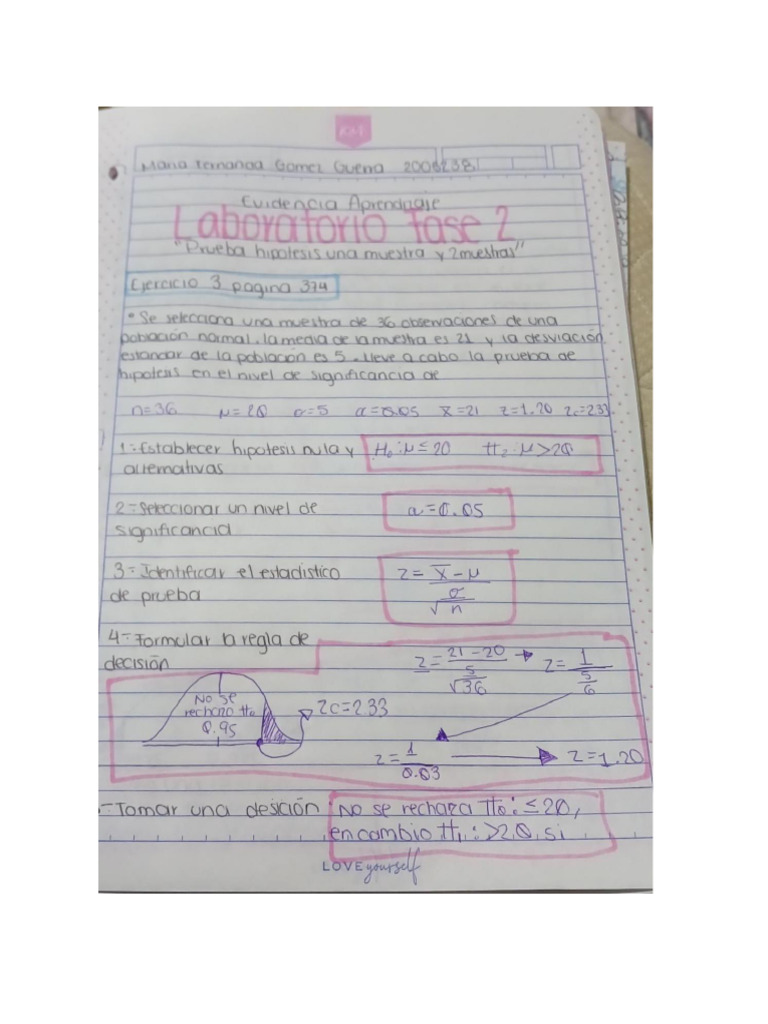 Maria Fernanda Gomez Guerra 2005238
Evidencia Aprendizaje
Laboratorio Fase 2
"Prueba hipotesis una muestra y 2 muestras"
Ejercicio 3 pagina 374
° Se selecciona una muestra de 36 observaciones de una
población normal. la media de la muestra es 21 y la desviación
estandar de la población es 5. lleve a cabo la prueba de
hipotesis en el nivel de significancia de
n=36 μ=20 σ=5 α=0.05 x̄=21 z=1.20 zc=2.33
1.-Establecer hipotesis nula y H₀:μ≤20 H₁:μ>20
alternativas
2.-Seleccionar un nivel de α=0.05
significancia
3.-Identificar el estadistico z = x̄-μ
de prueba σ
√n
4.-Formular la regla de
decisión z=21-20 z=1
5 5
√36 6
No se
rechaza H₀ zc=233
0.95
z=1 z=1.20
0.83
-Tomar una desición No se rechaza H₀:≤20,
en cambio H₁:>20 si
LOVE yourself